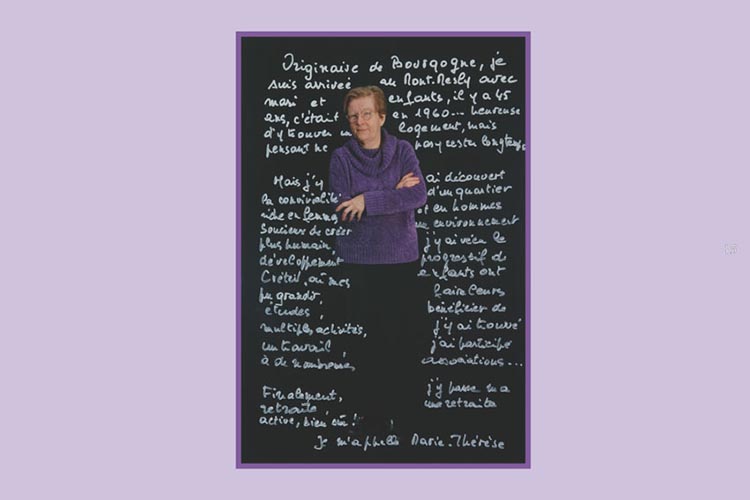 Originaire de Bourgogne, je
suis arrivée au Mont-Mesly avec
mari et enfants, il y a 45
ans, c'était en 1960... heureuse
d'y trouver un logement, mais
pensant ne pas y rester longtemps
Mais j'y ai découvert
la convivialité d'un quartier
riche en femmes et en hommes
soucieux de créer un environnement
plus humain, j'y ai vécu le
développement progressif de
Créteil, où mes enfants ont
pu grandir, faire leurs
études, bénéficier de
multiples activités, j'y ai trouvé
un travail, j'ai participé
à de nombreuses associations...
Finalement, j'y passe ma
retraite, une retraite
active, bien sûr!
Je m'appelle Marie-Thérèse